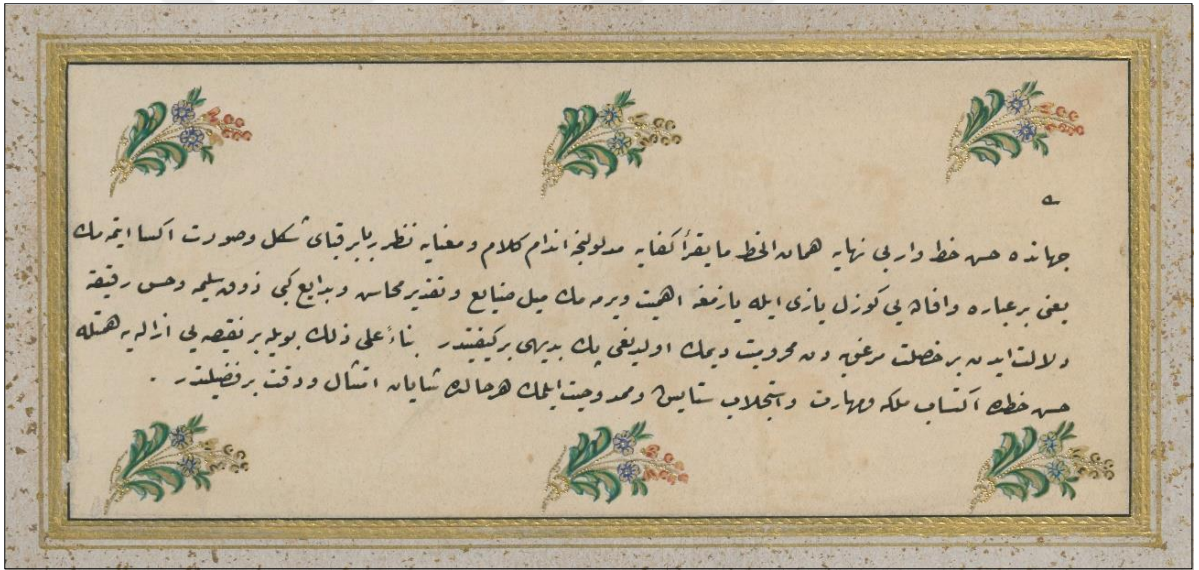 جهانده حسن خط وار بی نهایه همان الخط ما یقرأ کفایه مدلولنجه اندام کلام و معنایه نظر ربا بر قبای شکل و صورت اکسا ایتمه مك
یعنی بر عباره وافاده یی کوزل یازی ایله یازمغه اهمیت ویرمه مك میل صنایع و تقدیر محاسن و بدایع کبی ذوق سلیمه و حس رقیقه
دلالت ایدن بر خصلت مرغوبه دن محرومیت دیمك اولدیغی پك بدیهی بر کیفیتدر بناءً علی ذلك بویله بر نقیصه یی ازاله یه همتله
حسن خطده اکتساب ملکه ومهارت واستجلاب ستایش وممدوحیت ایلمك هر حالده شایان امتثال ودقت بر فضیلتدر .